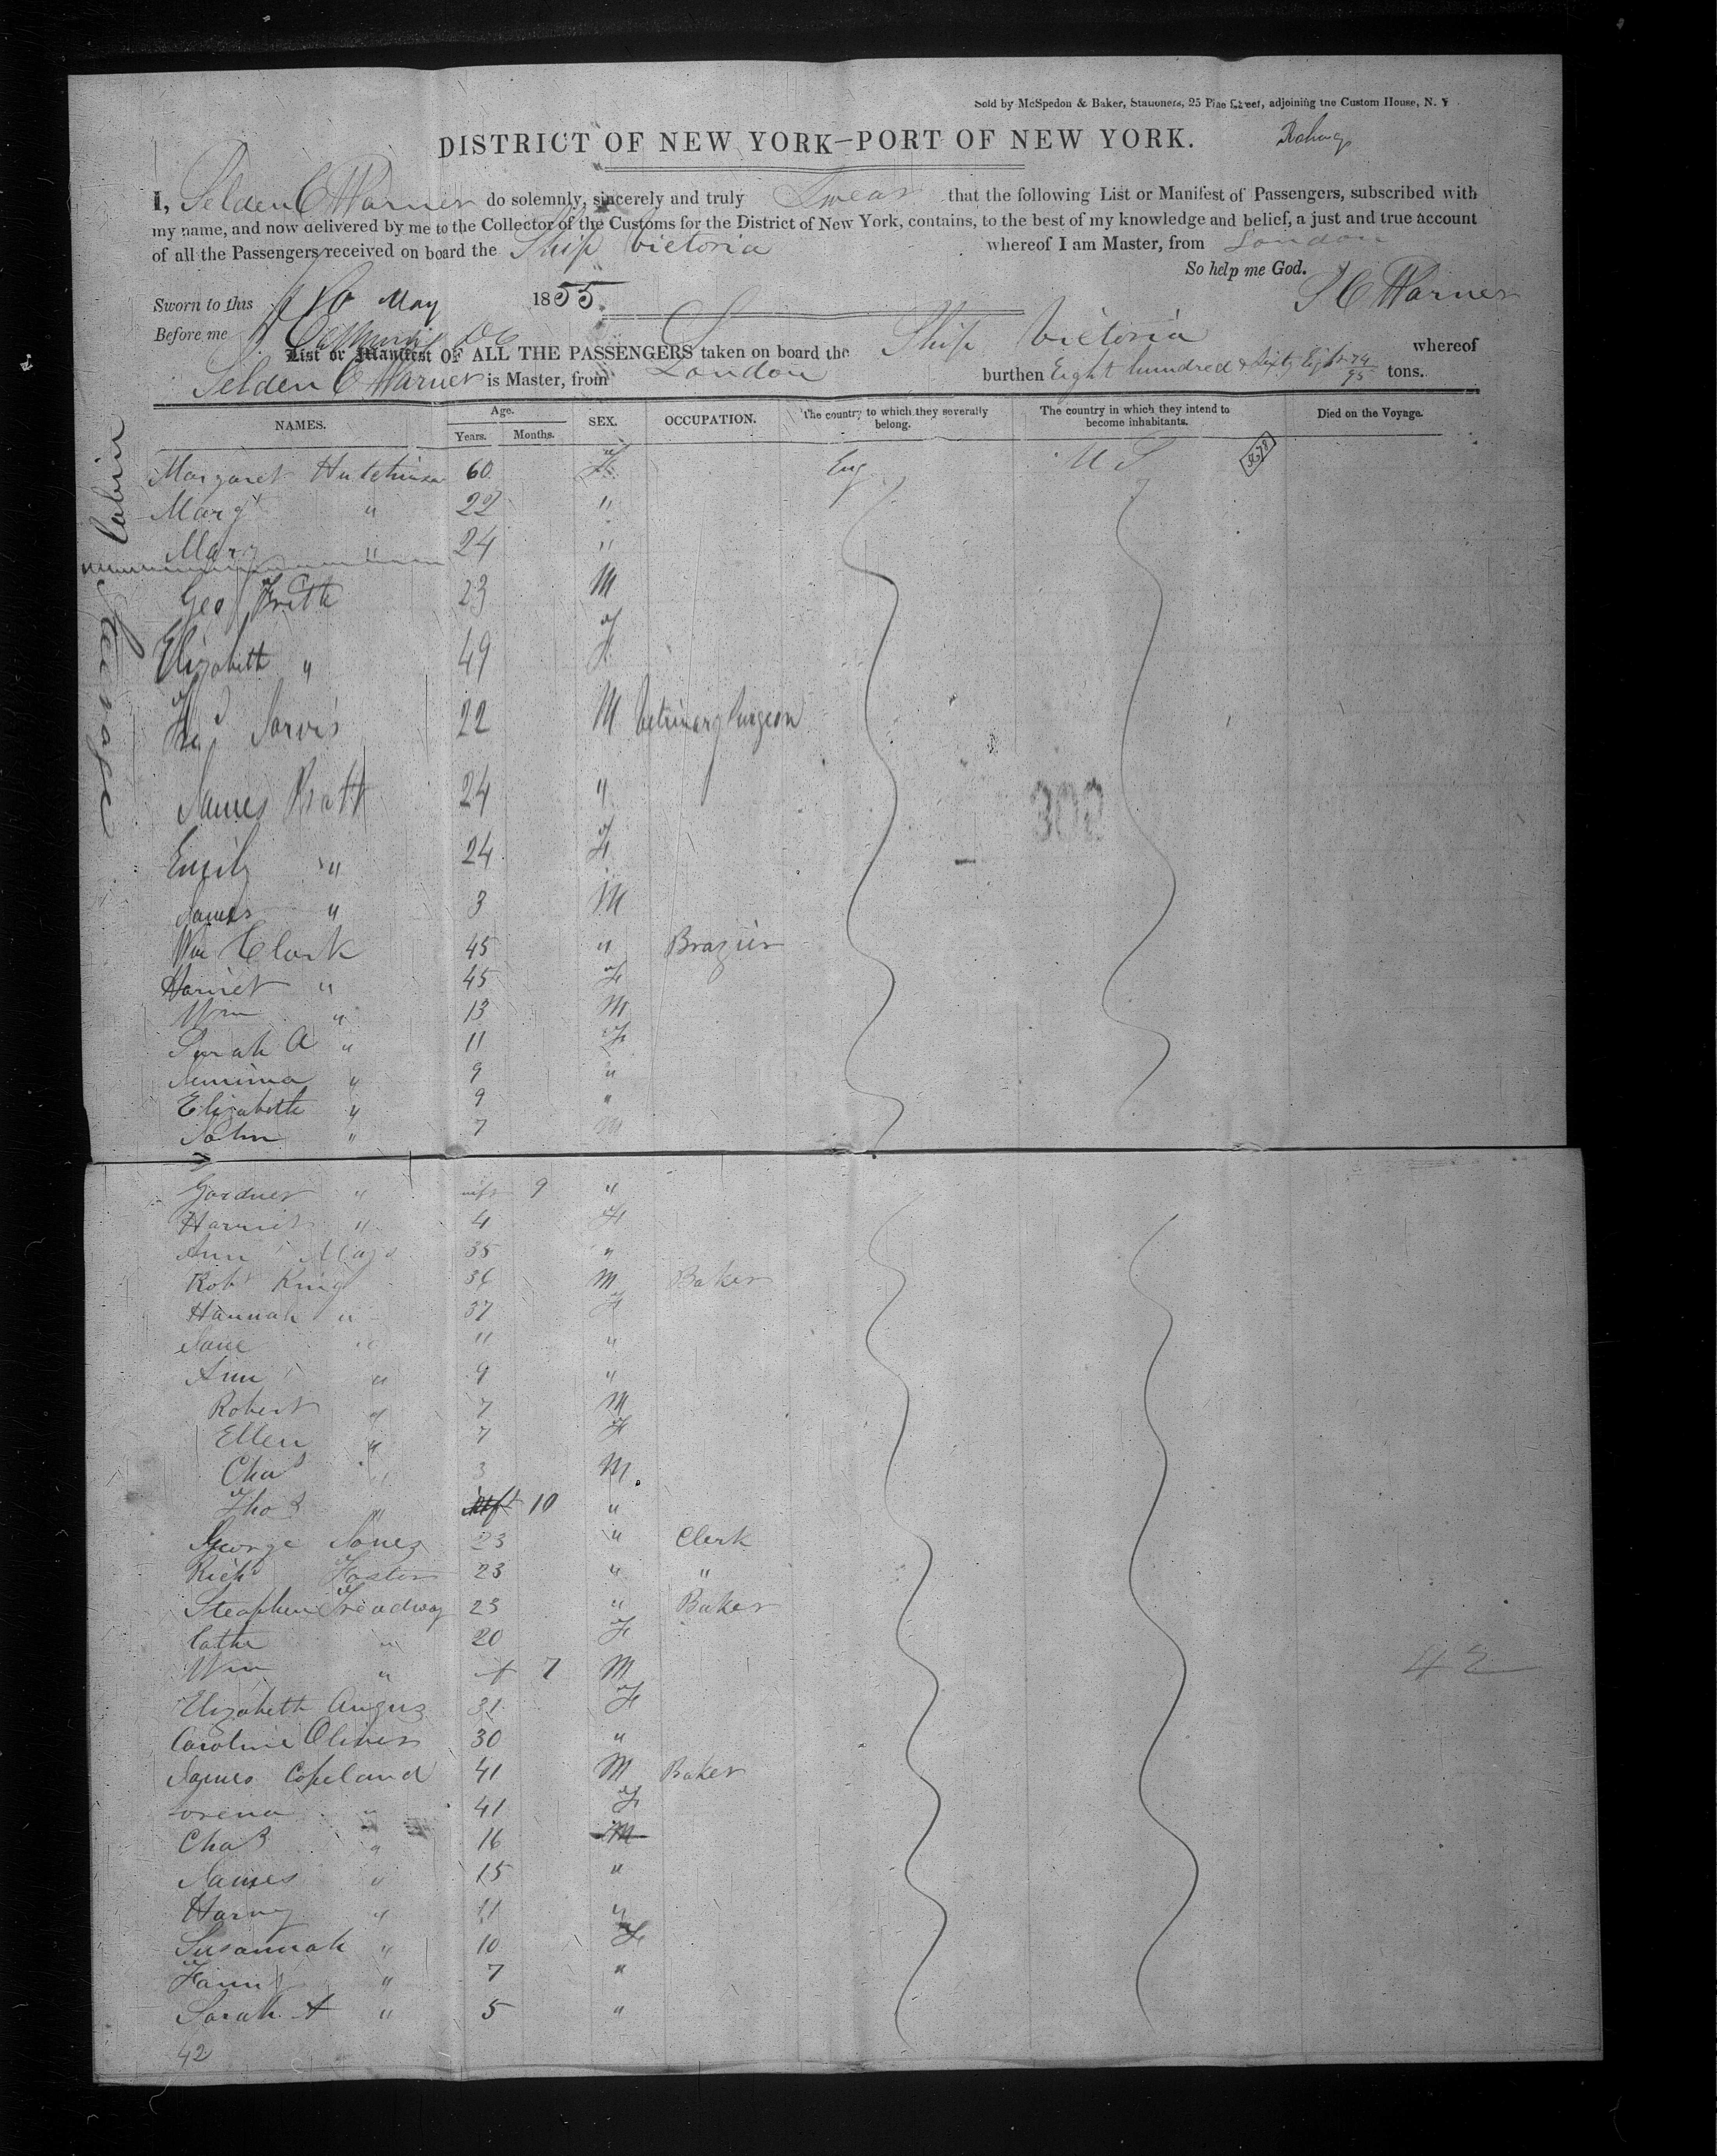 Sold by McSpedon & Baker, Stationers, 25 Pine Street, adjoining the Custom House, N. Y
DISTRICT OF NEW YORK—PORT OF NEW YORK.
I, Selden C Warner do solemnly, sincerely and truly Swear that the following List or Manifest of Passengers, subscribed with
my name, and now delivered by me to the Collector of the Customs for the District of New York, contains, to the best of my knowledge and belief, a just and true account
of all the Passengers received on board the Ship Victoria whereof I am Master, from London
So help me God.
Sworn to this 16 May 1855 S C Warner
Before me
List or Manifest OF ALL THE PASSENGERS taken on board the Ship Victoria whereof
Selden C Warner is Master, from London burthen Eight hundred & Sixty Eight 74/95 tons.
NAMES. Age. Years. Months. SEX. OCCUPATION. The country to which they severally belong. The country in which they intend to become inhabitants. Died on the Voyage.
Cabin
Margaret Hutchinson 60 F Eng U S
Margt " 22 "
Mary " 24 "
Steerage
Geo Frith 23 M
Elizabeth " 49 F
Jarvis 22 M Vetrinary Surgeon
James Pratt 24 "
302
Emily " 24 F
James " 3 M
Wm Clark 45 " Brazier
Harriet " 45 F
Wm " 13 M
Sarah A " 11 F
Jemima " 9 "
Elizabeth " 9 "
John " 7 M
Gardner " inft 9 "
Harriet " 4 F
Ann Mays 35 "
Robt King 36 M Baker
Hannah " 37 F
Jane " 11 "
Ann " 9 "
Robert " 7 M
Ellen " 7 F
Chas " 3 M
Thos " inft 10 "
George Jones 23 " Clerk
Richd Foster 23 " "
Steaphen Treadway 23 " Baker
Cathe " 20 F
Wm " 7 M
42
Elizabeth Angus 31 F
Caroline Oliver 30 "
James Copeland 41 M Baker
Lorena " 41 F
Chas " 16 M
James " 15 "
Harvey " 11 "
Susannah " 10 F
Fanny " 7 "
Sarah A " 5 "
42